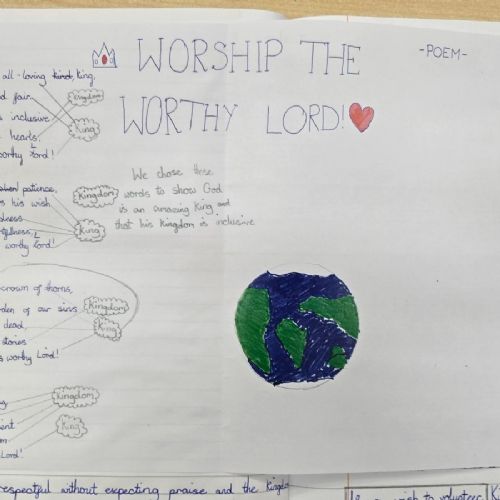 WORSHIP THE
-POEM-
WORTHY LORD!
all-loving king.
fair
Kingdom
inclusive
King
hearts,
worthy Lord!
We chose these
words to show God
is an amazing King and
that his Kingdom is inclusive
patience,
Kingdom
his wish
King
worthy Lord!
crown of thorns,
of our sins
Kingdom
dead,
King
stories
worthy Lord!
Kingdom
King
Lord!
respectful without expecting praise and the
to volunteer